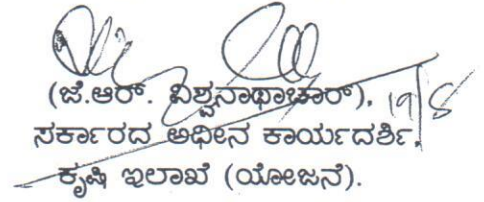 (ಜೆ.ಆರ್. ವಿಶ್ವನಾಥಾಚಾರ್), 19/8
ಸರ್ಕಾರದ ಅಧೀನ ಕಾರ್ಯದರ್ಶಿ,
ಕೃಷಿ ಇಲಾಖೆ (ಯೋಜನೆ).